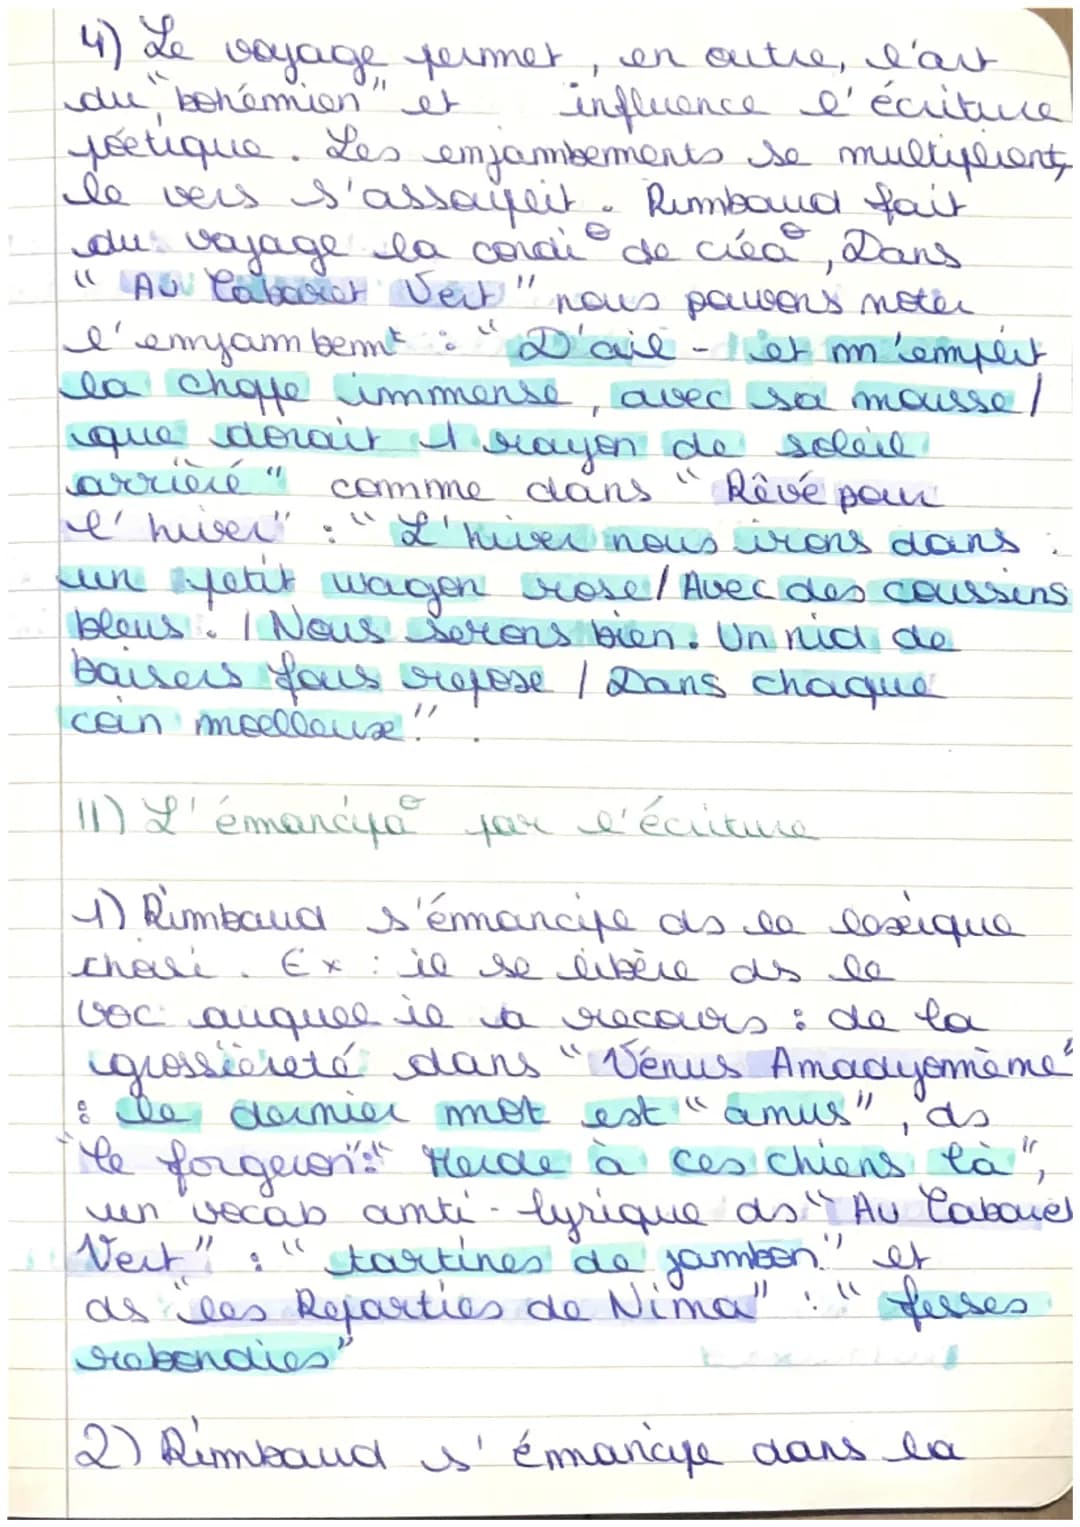 4) Le voyage permet, en outre, l'art
du "bohémien" et influence l'écriture
poétique. Les enjambements se multiplient,
le vers s'assouplit. Rimbaud fait
du voyage la condi° de créa°, Dans
"Au Cabaret Vert" nous pouvons noter
l'enjambemt : "D'ail - et m'emplit
la choppe immense, avec sa mousse /
que dorait 1 rayon de soleil
arriéré" comme dans "Rêvé pour
l'hiver" : "L'hiver nous irons dans
un petit wagon rose / Avec des coussins
bleus. / Nous serons bien. Un nid de
baisers fous repose / Dans chaque
coin moelleux".
II) L'émancipa° par l'écriture
1) Rimbaud s'émancipe ds le lexique
choisi. Ex : il se libère ds le
voc auquel il a recours : de la
grossièreté dans "Vénus Amadyomème"
: le dernier mot est "amus", ds
"le forgeron":"Merde à ces chiens là",
un vocab anti-lyrique ds "Au Cabaret
Vert" : "tartines de jambon" et
ds "les Reparties de Nima" : "fesses
rebondies"
2) Rimbaud s'émancipe dans la